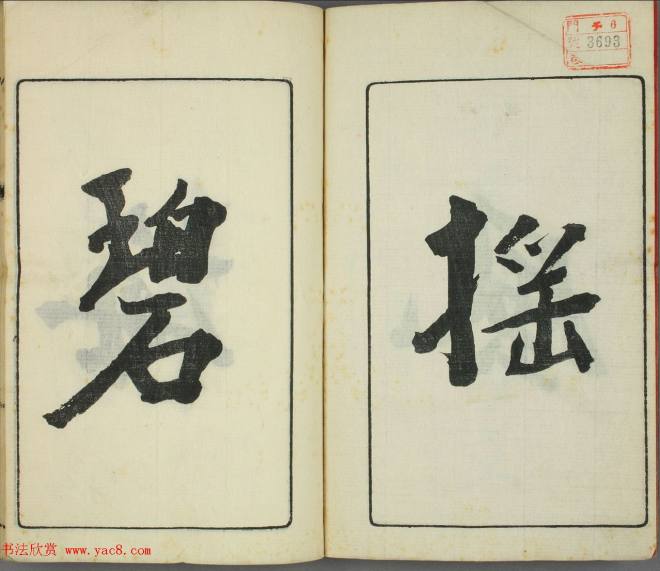 搖
碧
6
3693
书法欣赏 www.yac8.com